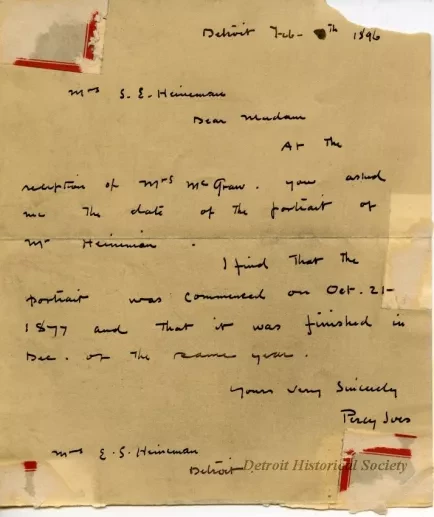 Detroit Feb- th 1896
Mrs S. E. Heineman
Dear Madam
At the
reception of Mrs McGraw. you asked
me the date of the portrait of
Mr Heineman.
I find that the
portrait was commenced on Oct. 21-
1877 and that it was finished in
Dec. of the same year.
Yours very Sincerely
Percy Ives
Mrs E. S. Heineman
Detroit
Detroit Historical Society